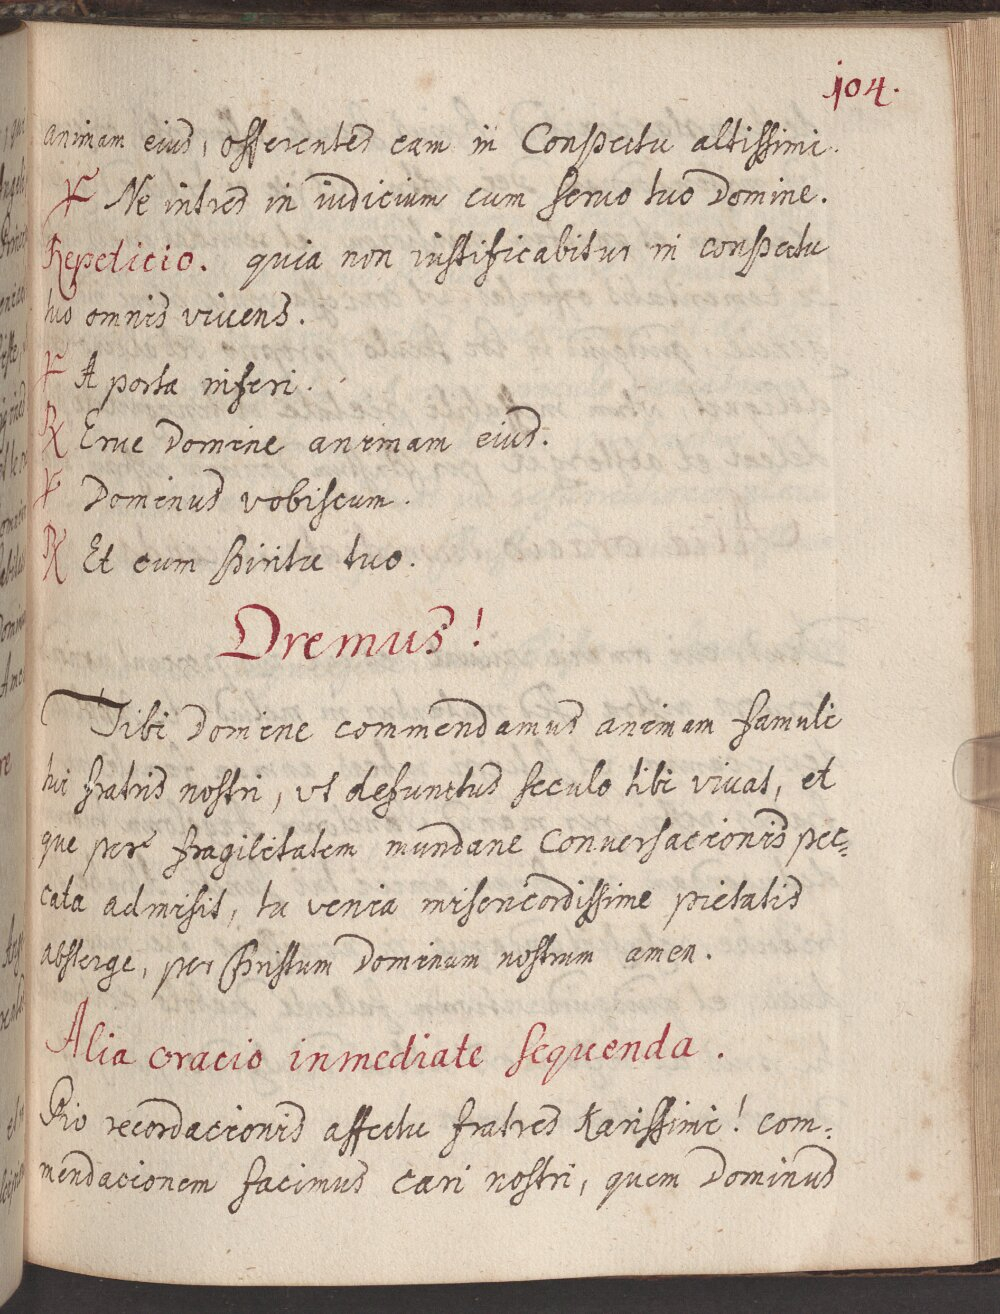 104.
animam eius, offerentes eam in Conspectu altissimi.
℣ Ne intres in iudicium cum servo tuo Domine.
Repeticio. quia non iustificabitur in conspectu
tuo omnis vivens.
℣ A porta inferi.
℟ Erue Domine animam eius.
℣ Dominus vobiscum.
℟ Et cum spiritu tuo.
Oremus!
Tibi Domine commendamus animam famuli
tui fratris nostri, ut defunctus seculo tibi vivat, et
que per fragilitatem mundane Conversacionis pec=
cata admisit, tu venia misericordissime pietatis
absterge, per Christum Dominum nostrum amen.
Alia oracio inmediate sequenda.
Pio recordacionis affectu fratres Karissimi! com=
mendacionem facimus cari nostri, quem Dominus